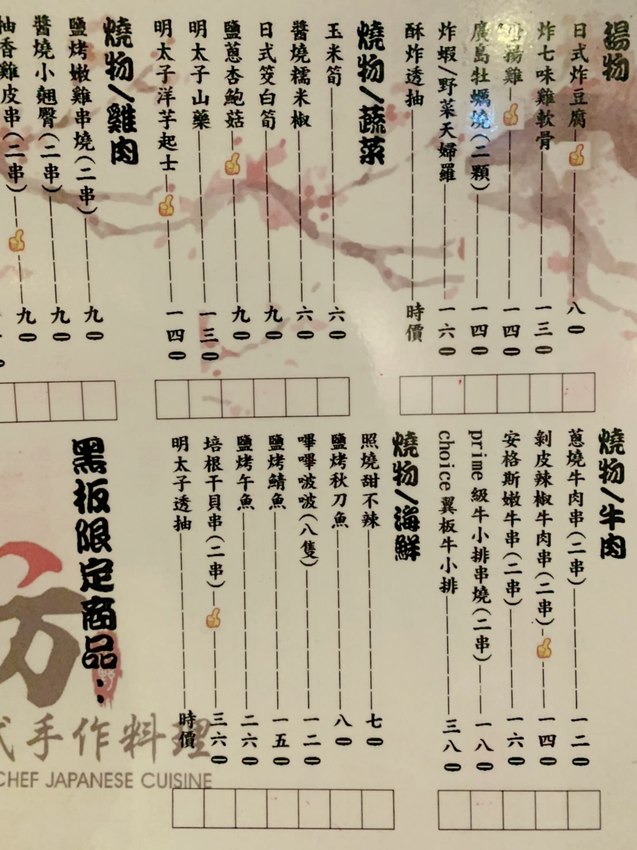 揚物
日式炸豆腐 八0
炸七味雞軟骨 一三0
揚雞 一四0
廣島牡蠣燒(二顆) 一四0
炸蝦/野菜天婦羅 一六0
酥炸透抽 時價
燒物/蔬菜
玉米筍 六0
醬燒糯米椒 六0
日式筊白筍 九0
鹽蔥杏鮑菇 九0
明太子山藥 一三0
明太子洋芋起士 一四0
燒物/雞肉
鹽烤嫩雞串燒(二串) 九0
醬燒小翹臀(二串) 九0
柚香雞皮串(二串) 九0
燒物/牛肉
蔥燒牛肉串(二串) 一二0
剝皮辣椒牛肉串(二串) 一四0
安格斯嫩牛串(二串) 一六0
prime級牛小排串燒(二串) 一八0
choice翼板牛小排 三八0
燒物/海鮮
照燒甜不辣 七0
鹽烤秋刀魚 八0
嗶嗶啵啵(八隻) 一二0
鹽烤鯖魚 一五0
鹽烤午魚 二六0
培根干貝串(二串) 三六0
明太子透抽 時價
黑板限定商品：
式手作料理
CHEF JAPANESE CUISINE